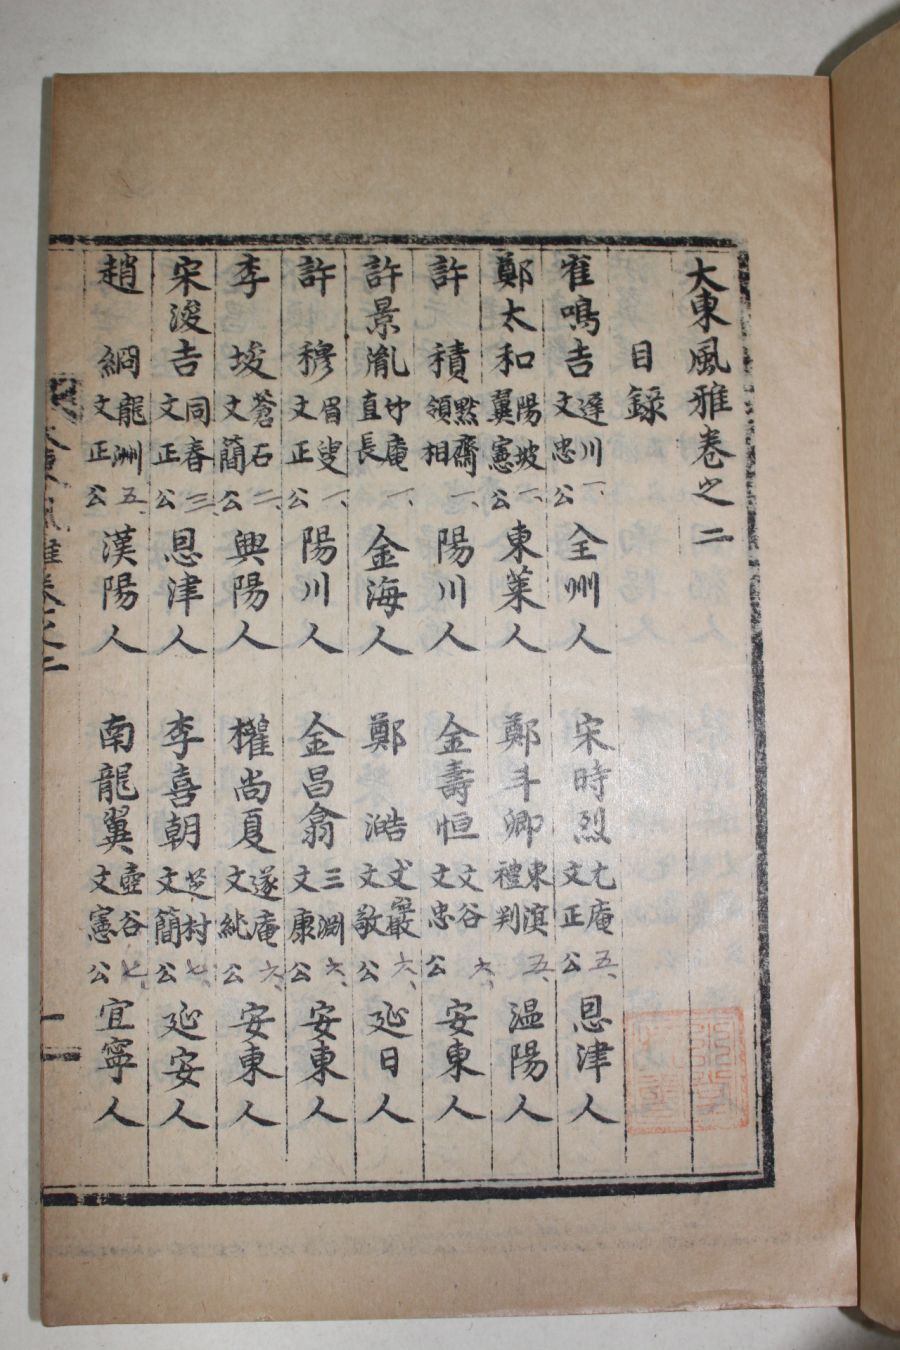 大東風雅卷之二
目録
崔鳴吉 遲川 文忠公 一 全州人 宋時烈 尤庵 文正公 五 恩津人
鄭太和 陽坡 翼憲公 一 東萊人 鄭斗卿 東溟 禮判 五 温陽人
許積 默齋 領相 一 陽川人 金壽恒 文谷 文忠公 六 安東人
許景胤 竹庵 直長 一 金海人 鄭澔 丈巖 文敬公 六 延日人
許穆 眉叟 文正公 一 陽川人 金昌翕 三淵 文康公 六 安東人
李埈 蒼石 文簡公 二 興陽人 權尚夏 遂庵 文純公 六 安東人
宋浚吉 同春 文正公 三 恩津人 李喜朝 芝村 文簡公 七 延安人
趙絅 龍洲 文正公 五 漢陽人 南龍翼 壺谷 文憲公 七 宜寧人
大東風雅卷之二 一